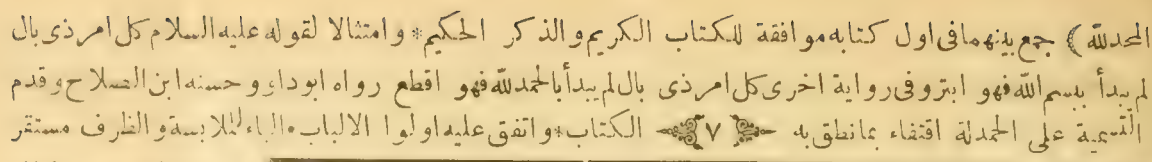 الحمدلله ﴾ جمع بينهما فى اول كتابه موافقة للكتاب الكريم و الذكر الحكيم * و امتثالا لقوله عليه السلام كل امر ذى بال
لم يبدأ ببسم الله فهو ابتر و فى رواية اخرى كل امر ذى بال لم يبدأ بالحمد لله فهو اقطع رواه ابو داود و حسنه ابن الصلاح و قدم
التسمية على الحمدلة اقتفاء بما نطق به ٧ الكتاب * و اتفق عليه اولوا الالباب * الباء للملابسة و الظرف مستقر